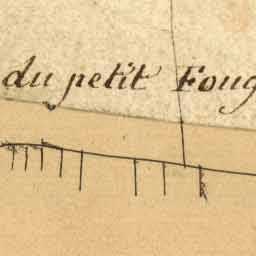 du petit Foug